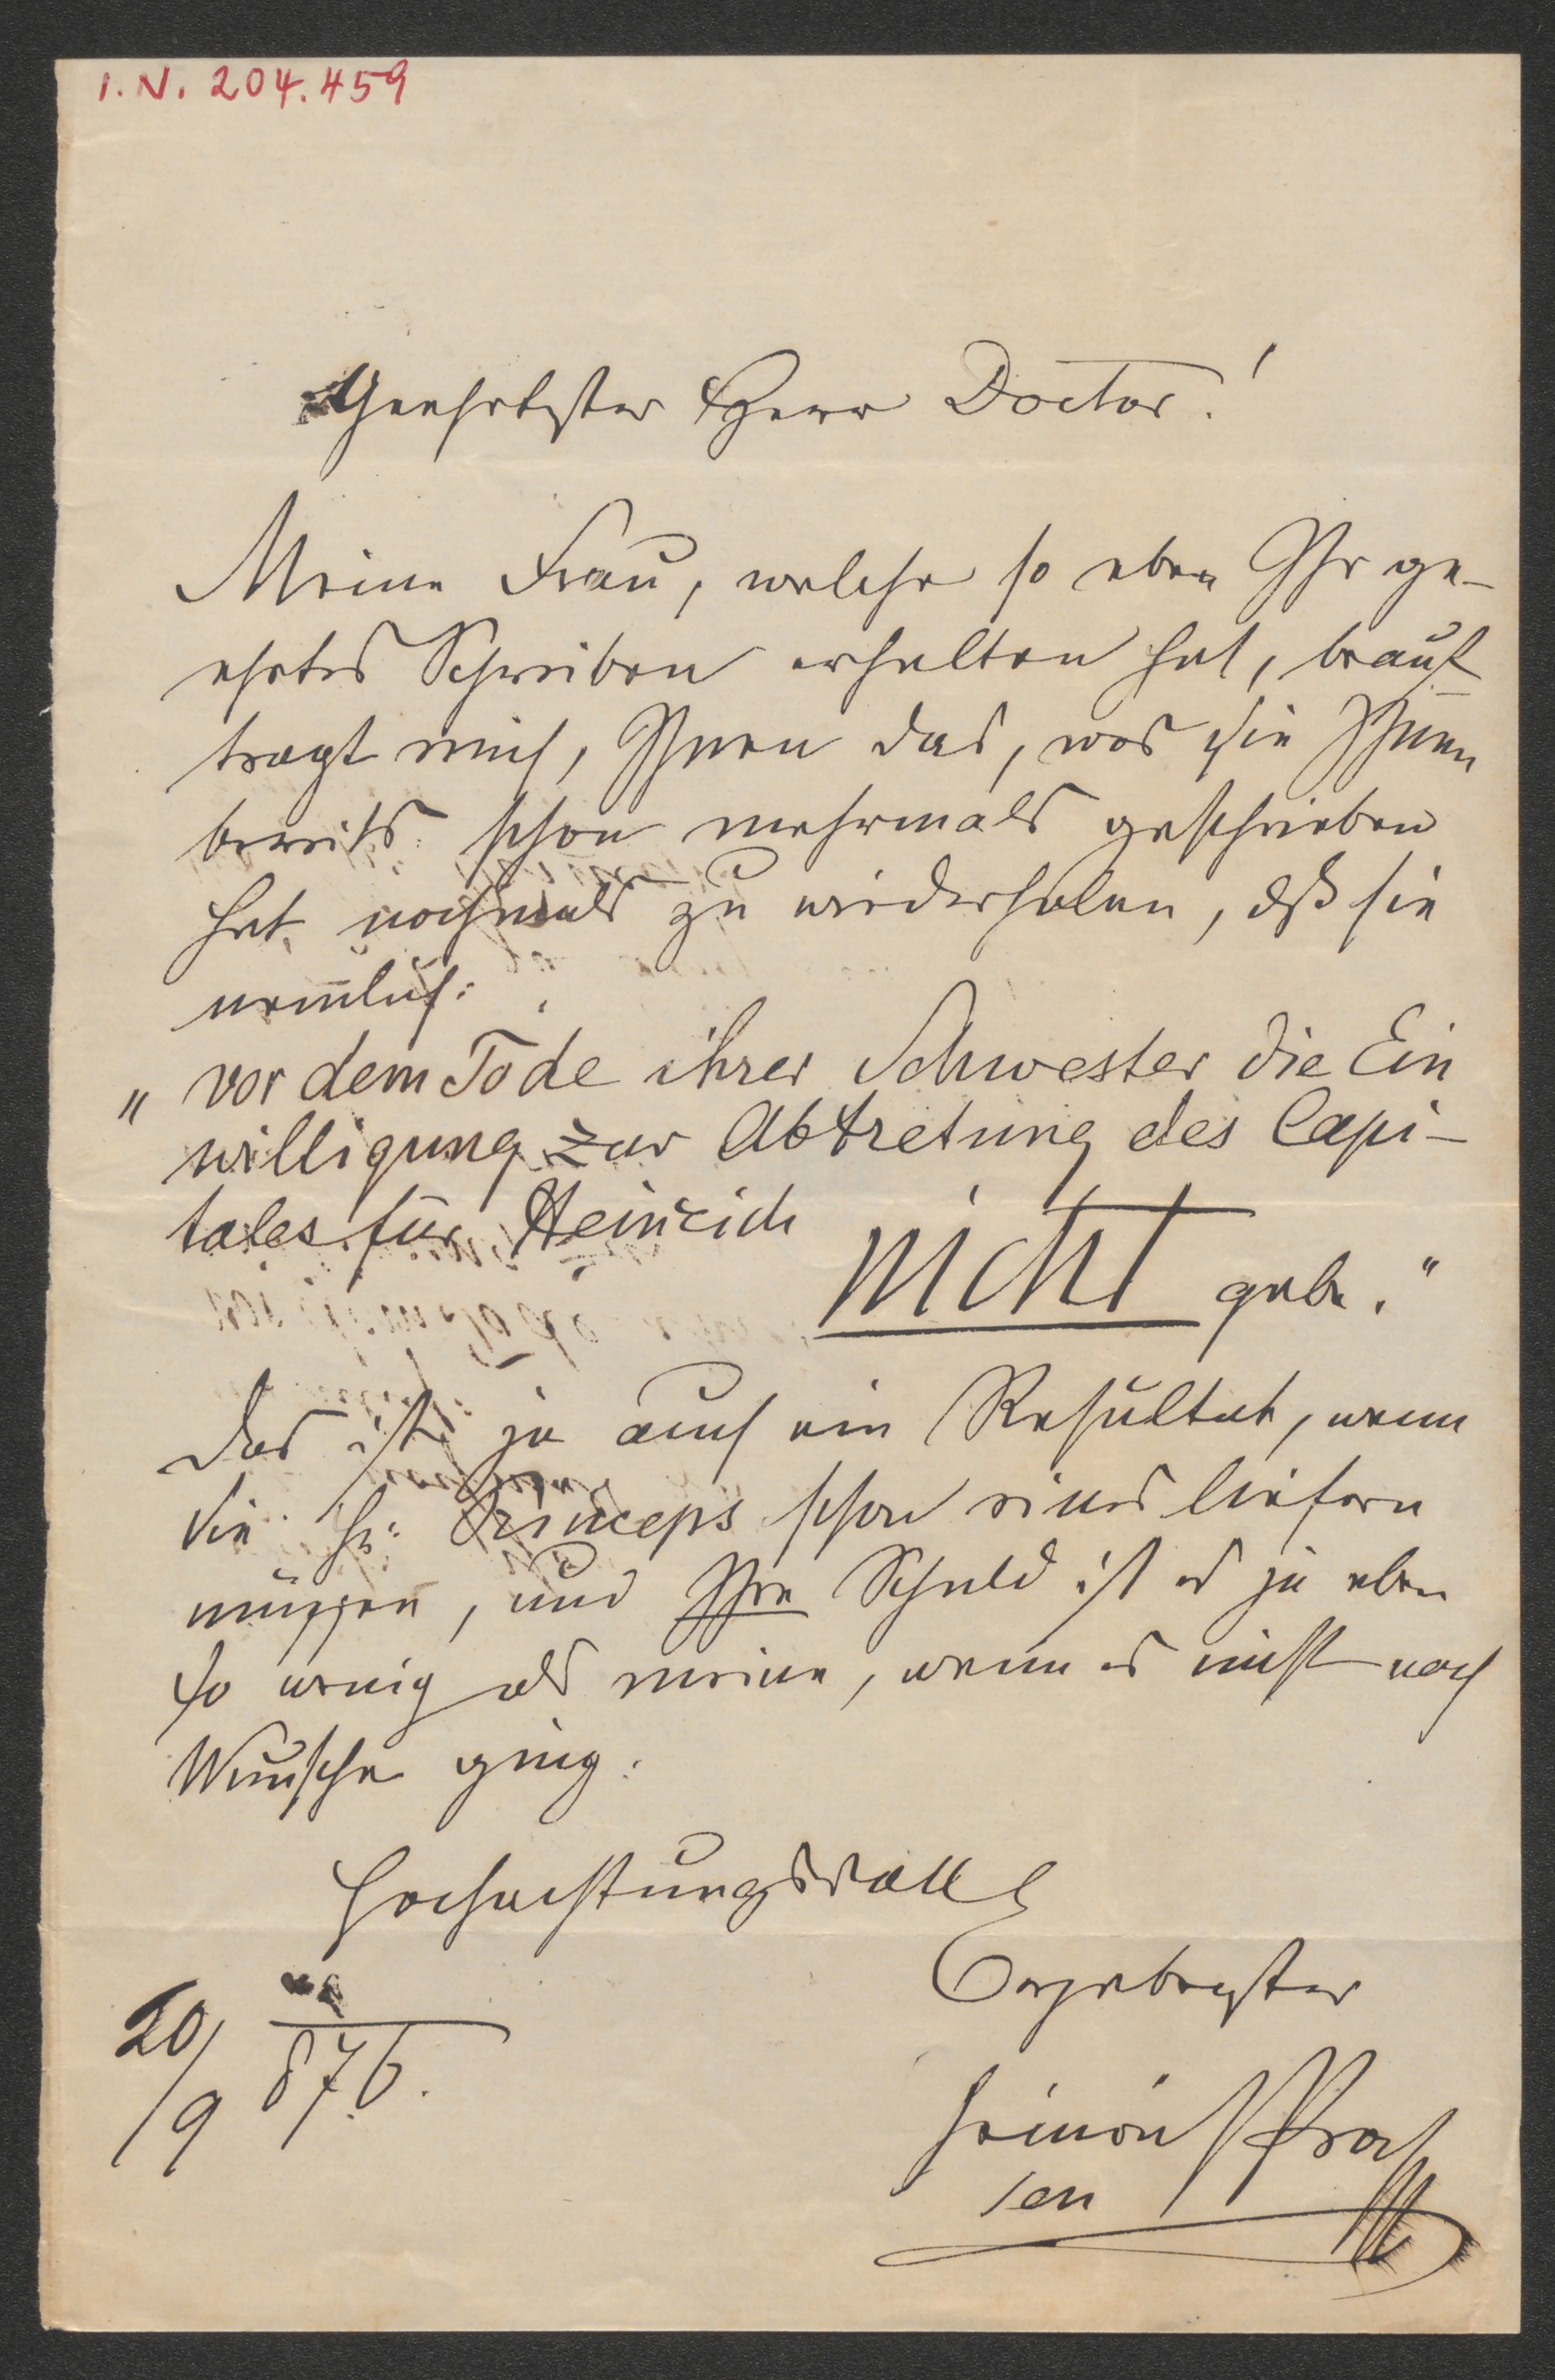 I.N. 204.459
Geehrtester Herr Doctor!
Meine Frau, welche so eben Ihr ge-
ehrtes Schreiben erhalten hat, beauf-
tragt mich, Ihnen das, was sie Ihnen
bereits schon mehrmals geschrieben
hat nochmals zu wiederholen, dß sie
nemlich:
„vor dem Tode ihrer Schwester die Ein
willigung zur Abtretung des Capi-
tales für Heinrich
nicht gebe."
Das ist ja auch ein Resultat, wenn
die Hr: Princeps schon eines liefern
müssen, und Ihre Schuld ist es ja eben
so wenig als meine, wenn es nicht nach
Wunsche ging.
Hochachtungsvoll
Ergebenster
20/9 876.
sen